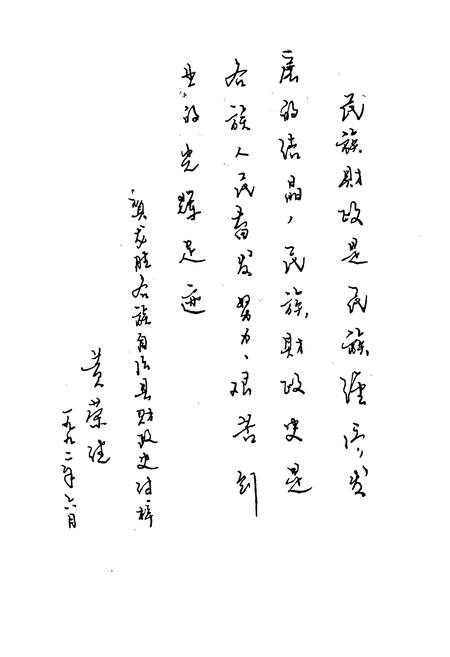 民族财政是民族经济发
展的结晶，民族财政史是
各族人民奋发努力、艰苦创
业的光辉足迹
贺龙胜各族自治县财政史付梓
黄荣
一九九二年六月